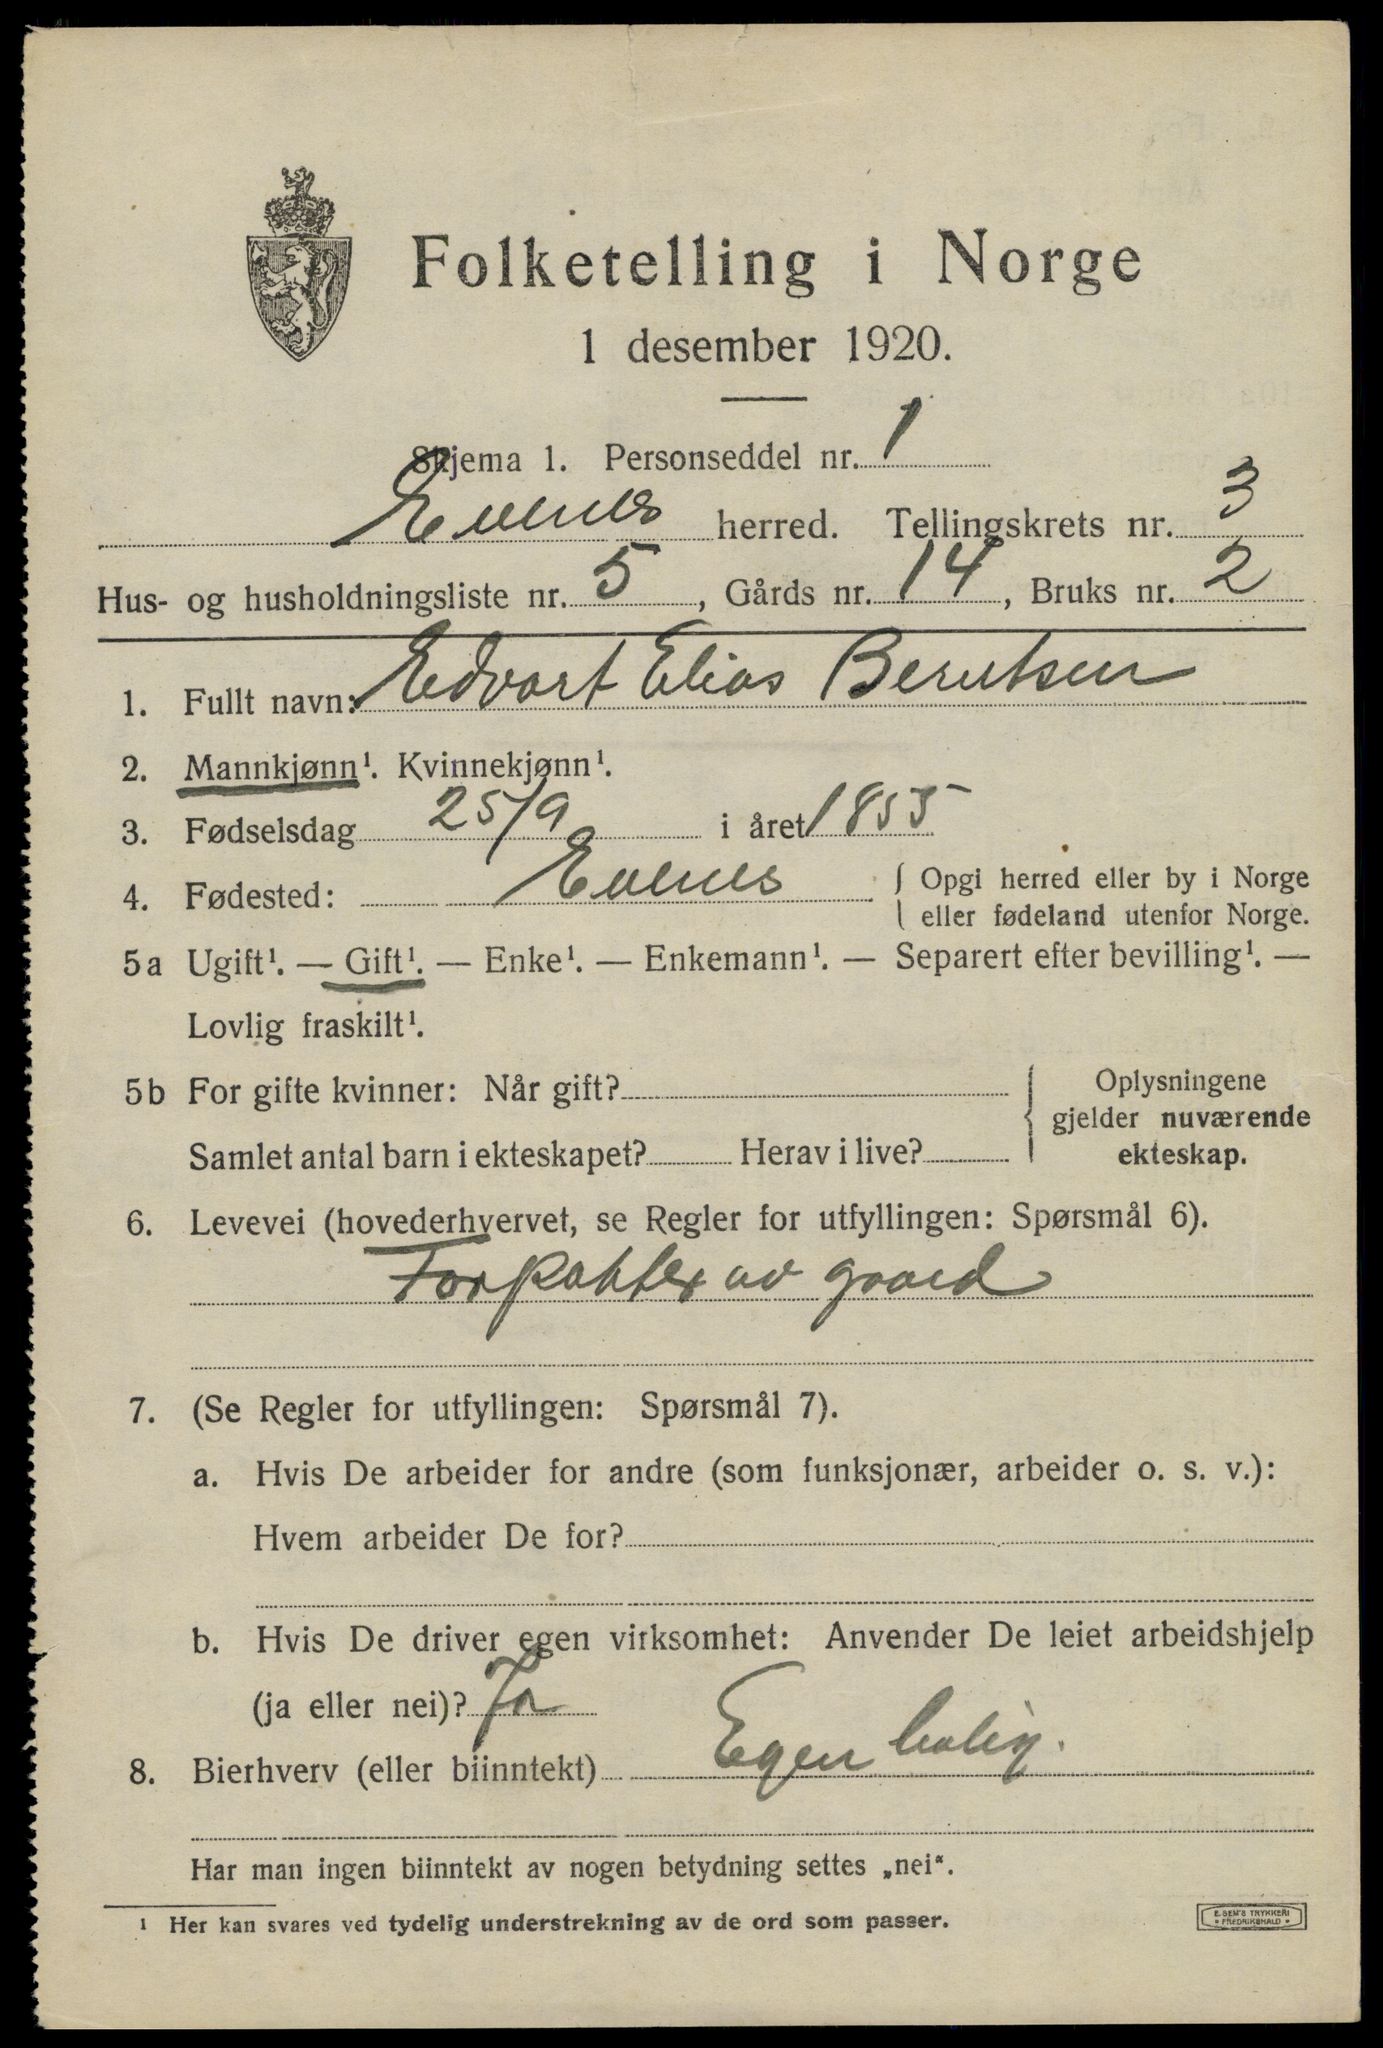 Folketelling i Norge
1 desember 1920.
Skjema 1. Personseddel nr. 1
Evenes herred. Tellingskrets nr. 3
Hus- og husholdningsliste nr. 5, Gårds nr. 14, Bruks nr. 2
1. Fullt navn: Edvart Elias Berntsen
2. Mannkjønn¹. Kvinnekjønn¹.
3. Fødselsdag 25/9 i året 1855
4. Fødested: Evenes { Opgi herred eller by i Norge
eller fødeland utenfor Norge.
5a Ugift¹. — Gift¹. — Enke¹. — Enkemann¹. — Separert efter bevilling¹. —
Lovlig fraskilt¹.
5b For gifte kvinner: Når gift? { Oplysningene
gjelder nuværende
Samlet antal barn i ekteskapet? Herav i live? ekteskap.
6. Levevei (hovederhvervet, se Regler for utfyllingen: Spørsmål 6).
Forpakter av gaard
7. (Se Regler for utfyllingen: Spørsmål 7).
a. Hvis De arbeider for andre (som funksjonær, arbeider o. s. v.):
Hvem arbeider De for?
b. Hvis De driver egen virksomhet: Anvender De leiet arbeidshjelp
(ja eller nei)? Ja
8. Bierhverv (eller biinntekt) Egen bolig.
Har man ingen biinntekt av nogen betydning settes „nei“.
¹ Her kan svares ved tydelig understrekning av de ord som passer.
E. SEM'S TRYKKERI
* FREDRIKSHALD *